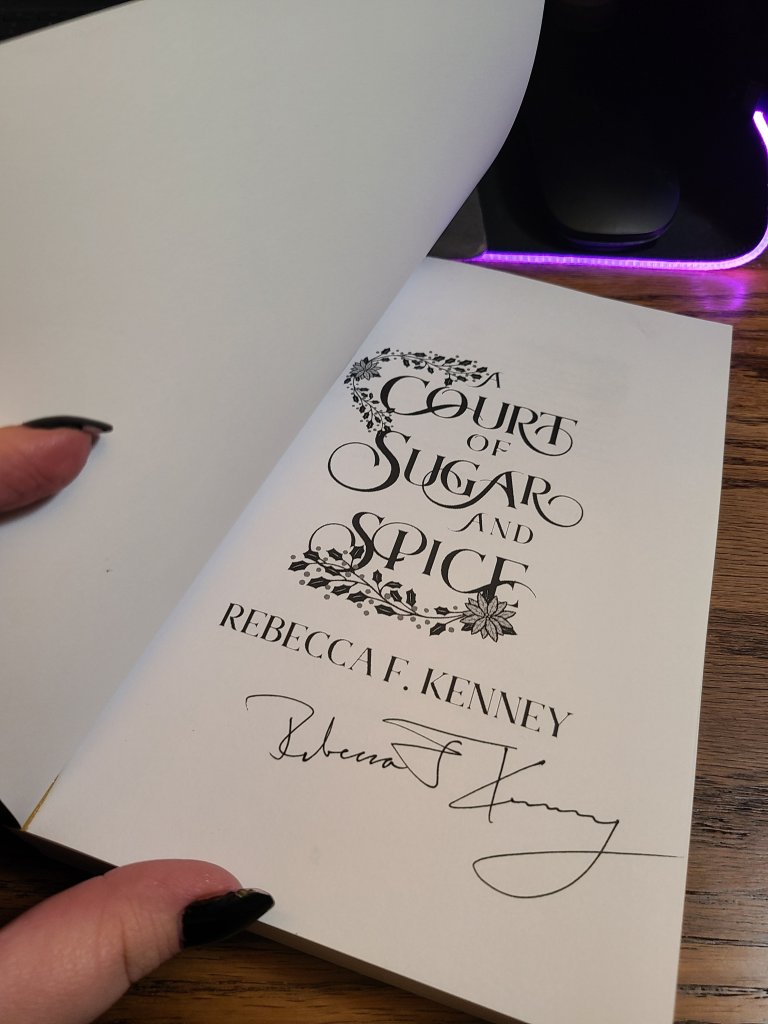 A
COURT
OF
SUGAR
AND
SPICE
REBECCA F. KENNEY
Rebecca F Kenney